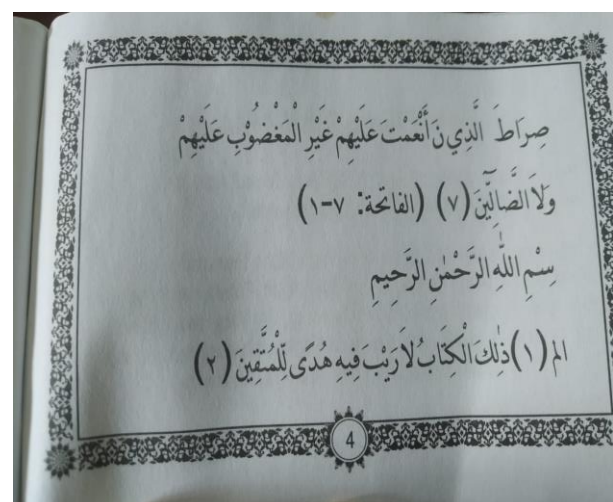 صِرَاطَ الَّذِي نَ أَنْعَمْتَ عَلَيْهِمْ غَيْرِ الْمَغْضُوْبِ عَلَيْهِمْ
وَلاَ الضَّالِّيْنَ (٧) (الفاتحة: ٧-١)
سِْمِ اللَّهِ الرَّحْمٰنِ الرَّحِيمِ
الم (١) ذٰلِكَ الْكِتَابُ لاَ رَيْبَ فِيهِ هُدًى لِّلْمُتَّقِينَ (٢)
4